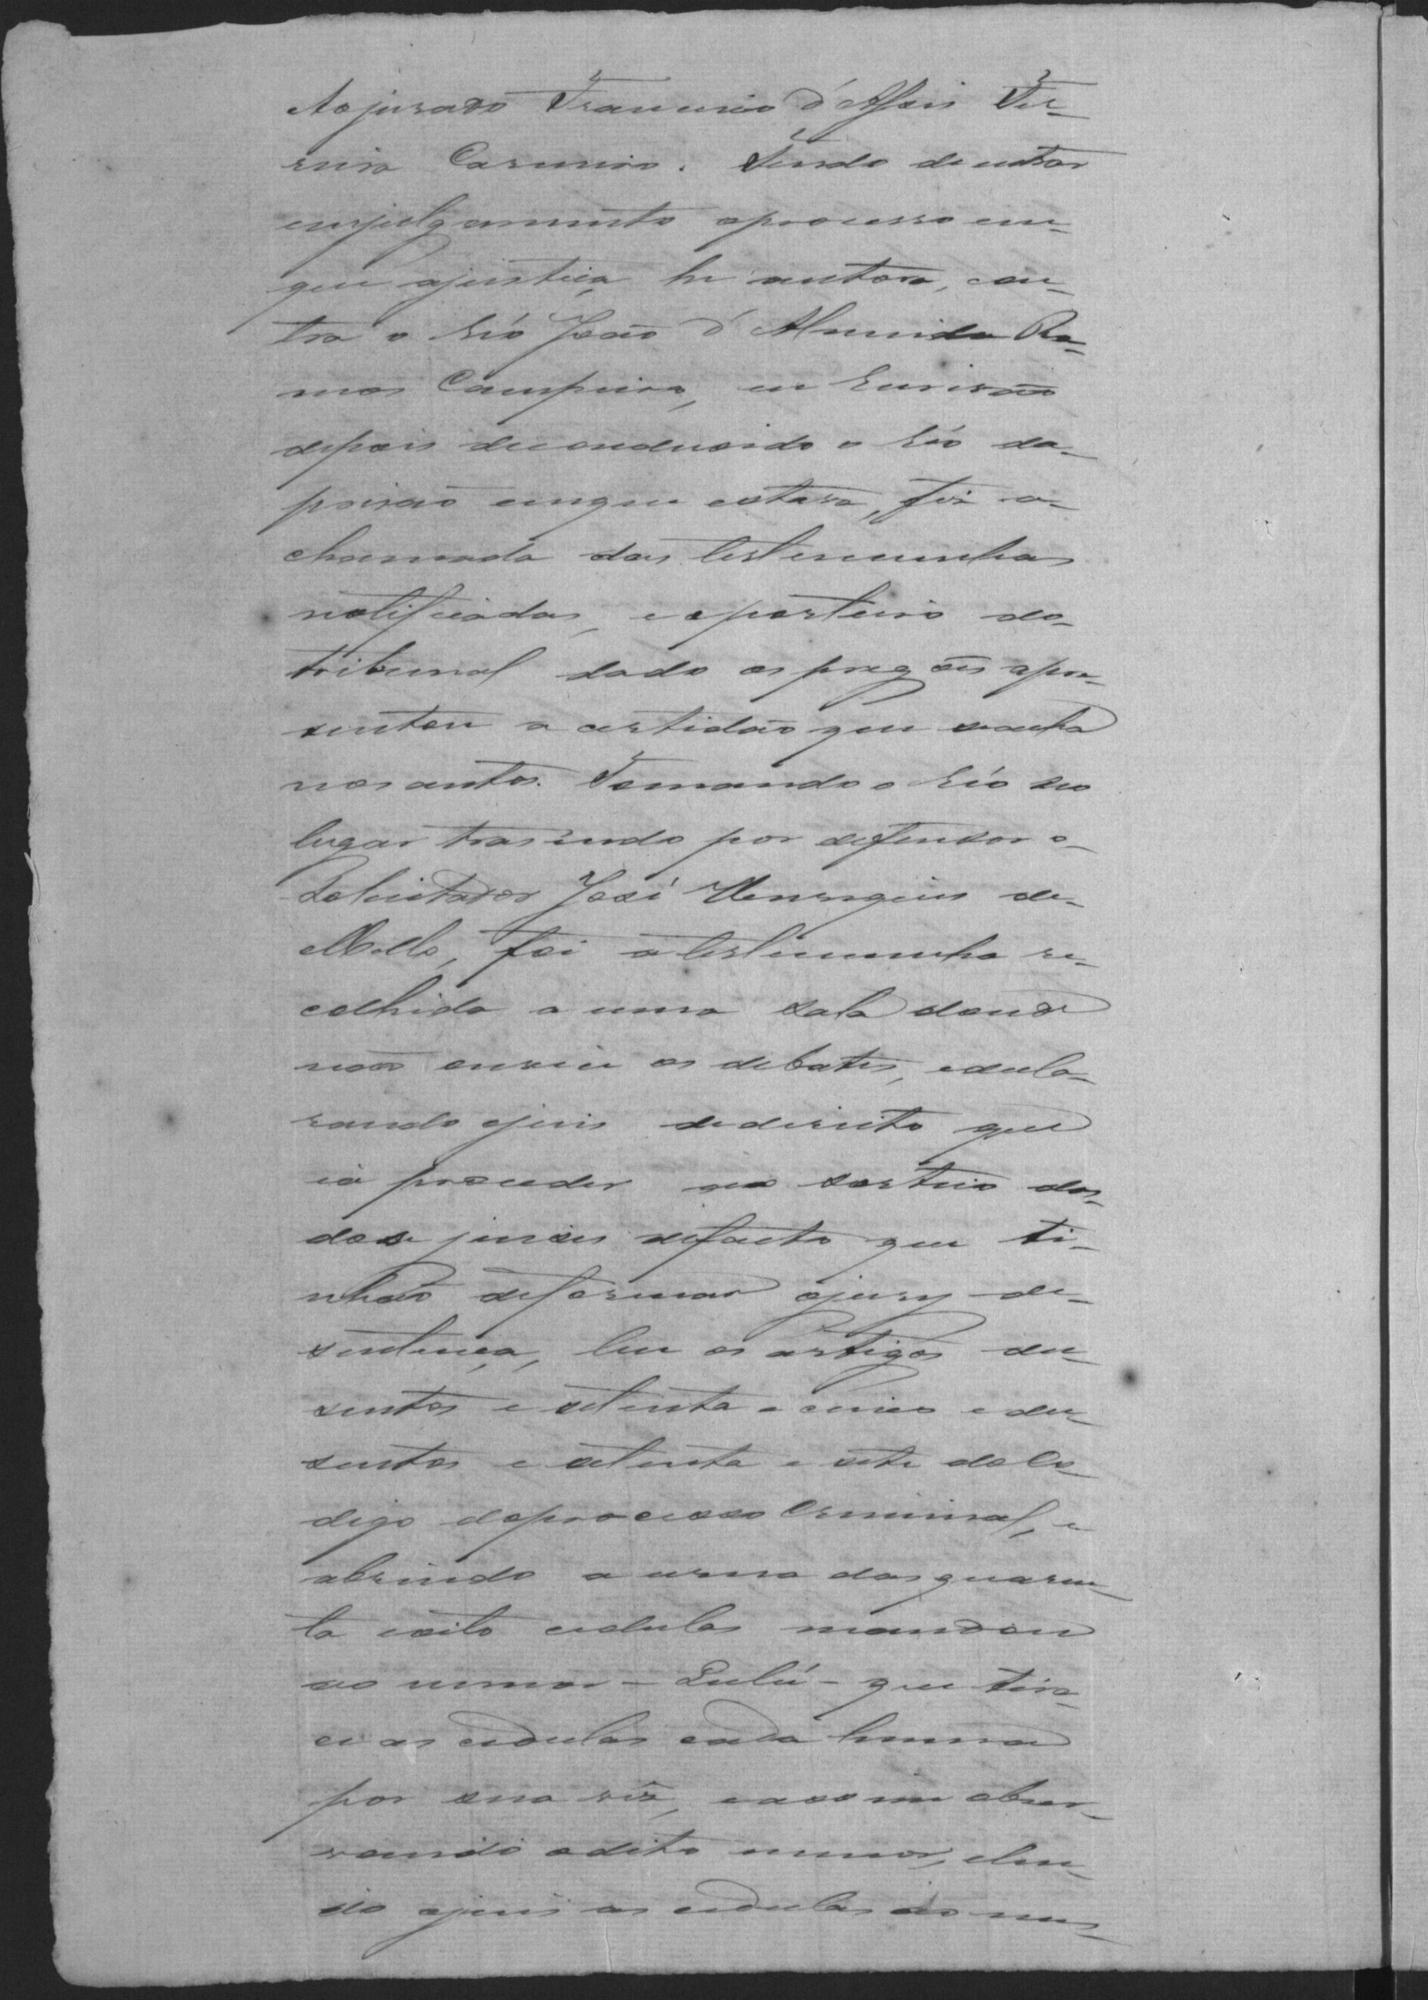 Ao jurado Francisco d'Assis Fer-
reira Carneiro. Tendo de entrar
em julgamento o processo em
que ajustiça he autora, con-
tra o Réo João d'Almeida Ra-
mos Campeira, em
depois de conduzido o Réo da
prisão em que estava, foi a
chamada das testemunhas
notificadas, e o porteiro do
tribunal dado os pregões apre-
sentou a certidão que
nos autos. Tomando o Réo seo
lugar trasendo por defensor o
Solicitador José Henriques de
Mello, foi a testemunha re-
colhida a uma sala donde
não ouvia os debates, e decla-
rando o juis de direito que
ia proceder ao sorteio dos
dose juises de facto que ti-
nhão de formar o jury de
sentença, leu os artigos du-
sentos e setenta e cinco e du-
sentos e setenta e sete do Co-
digo do processo Criminal, e
abrindo a urna das quaren-
ta e oito cedulas mandou
ao menor - Lulú - que tiras-
ce as cedulas cada huma
por sua vês, e assim obser-
vando o dito menor, e len-
do o juis as cedulas ao mes-